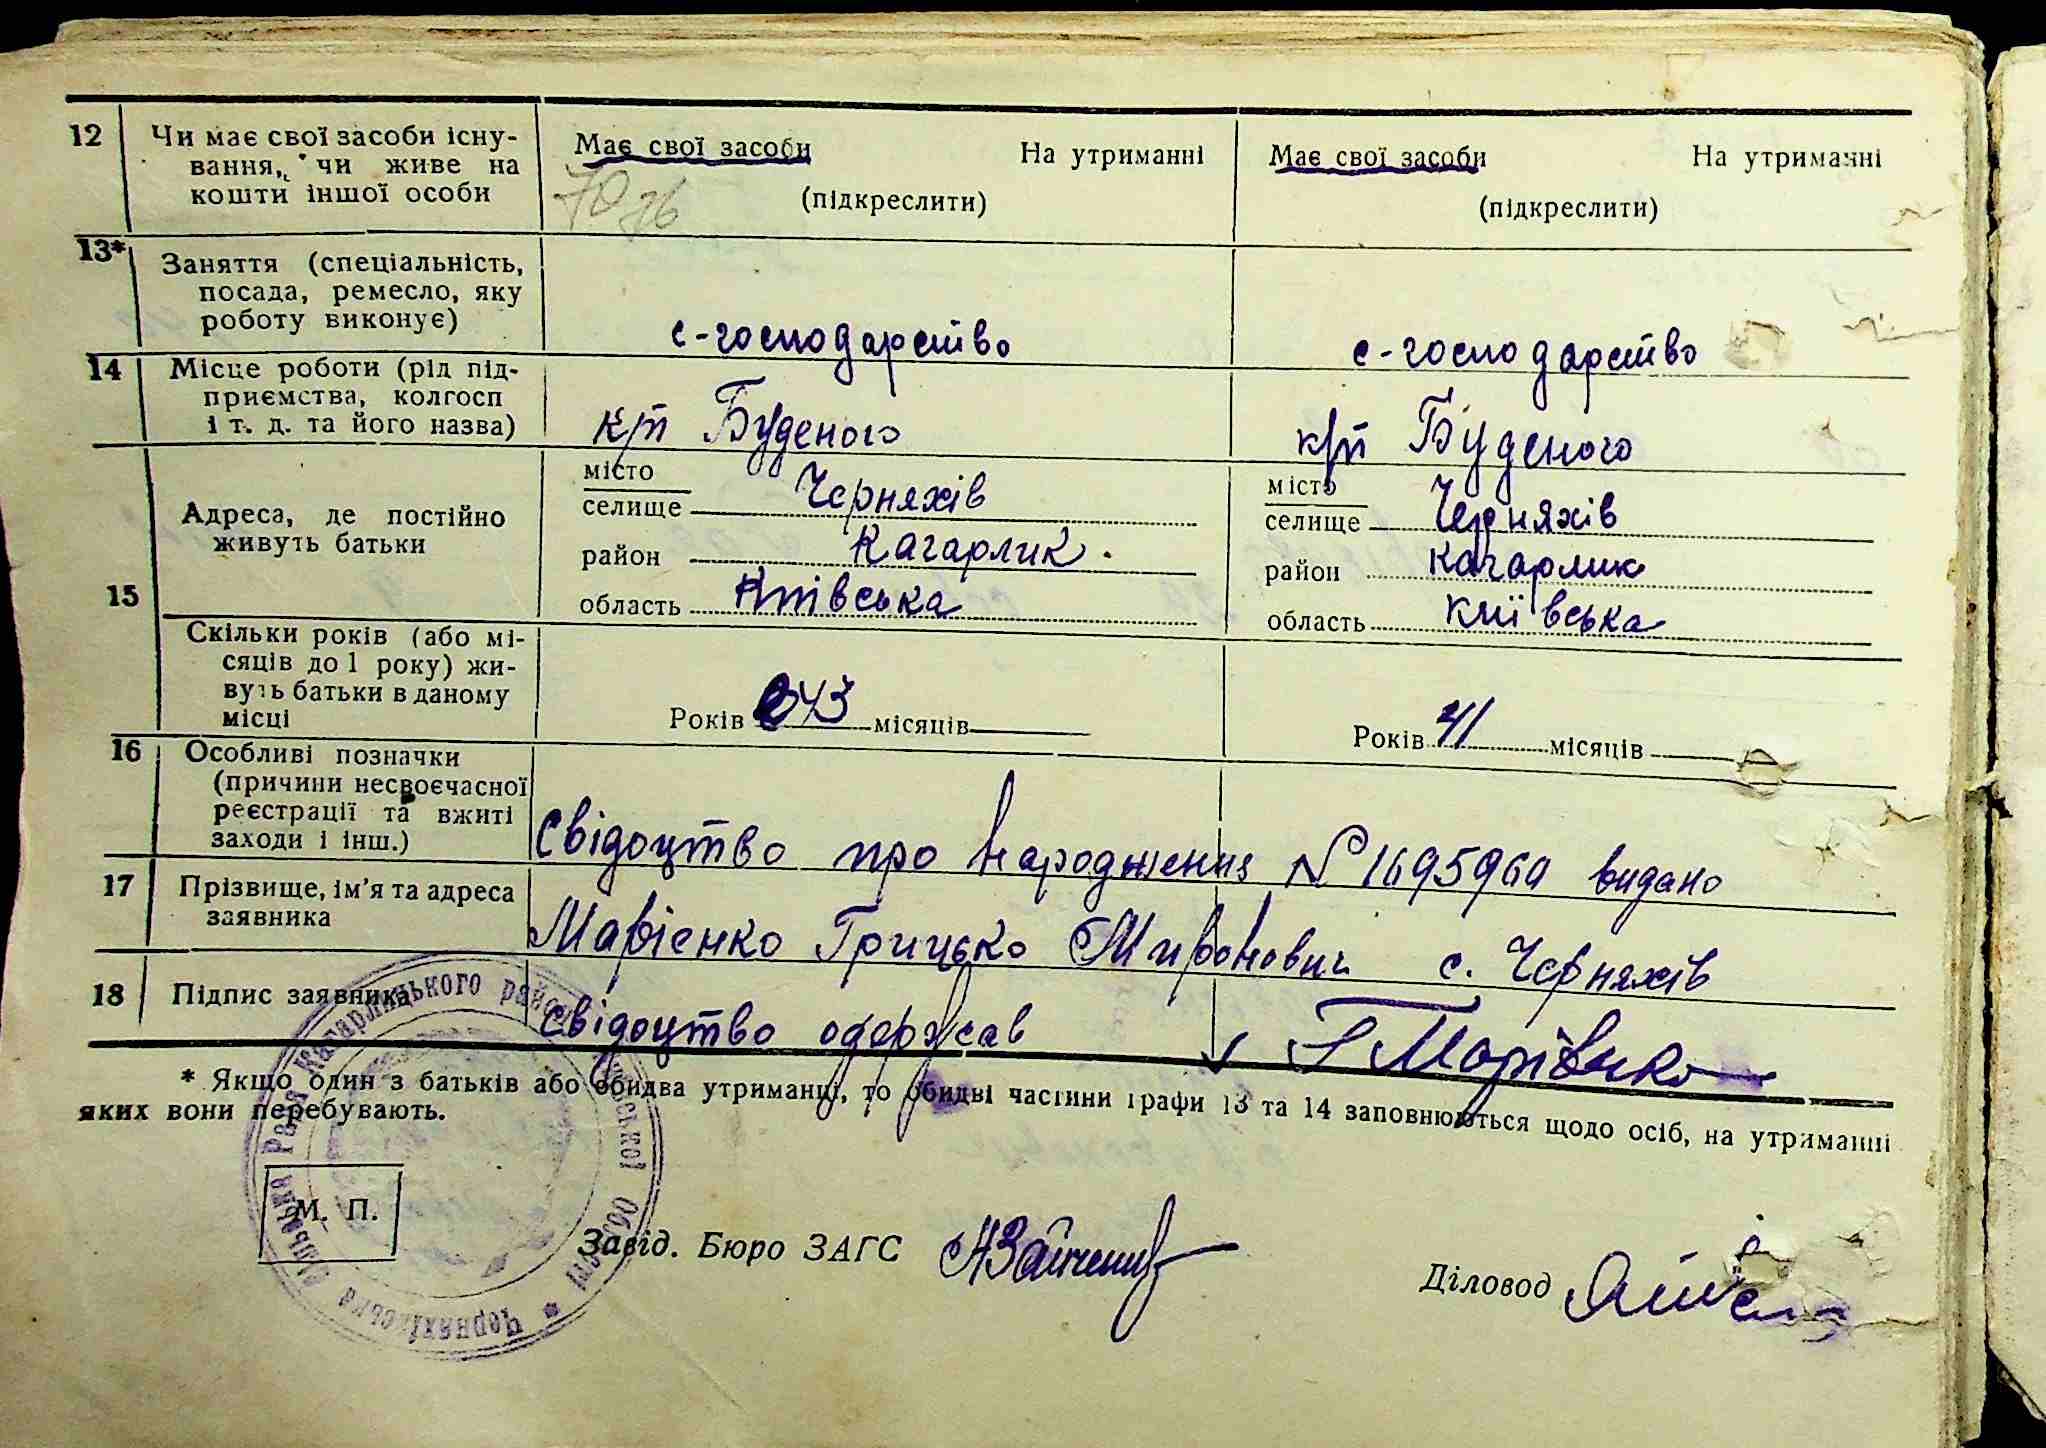 12 Чи має свої засоби існу- Має свої засоби На утриманні Має свої засоби На утриманні
вання, чи живе на
кошти іншої особи (підкреслити) (підкреслити)
13* Заняття (спеціальність,
посада, ремесло, яку
роботу виконує) с-господарство с-господарство
14 Місце роботи (рід під-
приємства, колгосп
і т. д. та його назва) к/п Буденого к/п Буденого
15 Адреса, де постійно
живуть батьки
місто місто
селище Черняхів селище Черняхів
район Кагарлик. район Кагарлик
область Київська область Київська
Скільки років (або мі-
сяців до 1 року) жи-
вуть батьки в даному
місці Років 43 місяців Років 41 місяців
16 Особливі позначки
(причини несвоєчасної
реєстрації та вжиті
заходи і інш.) Свідоцтво про народження № 1695960 видано
17 Прізвище, ім'я та адреса
заявника Марієнко Грицько Миронович с. Черняхів
18 Підпис заявника свідоцтво одержав Г Марієнко
* Якщо один з батьків або обидва утриманці, то обидві частини графи 13 та 14 заповнюються щодо осіб, на утриманні
яких вони перебувають.
Черняхівська сільська Рада Кагарлицького району Київської Області
М. П.
Завід. Бюро ЗАГС
Діловод